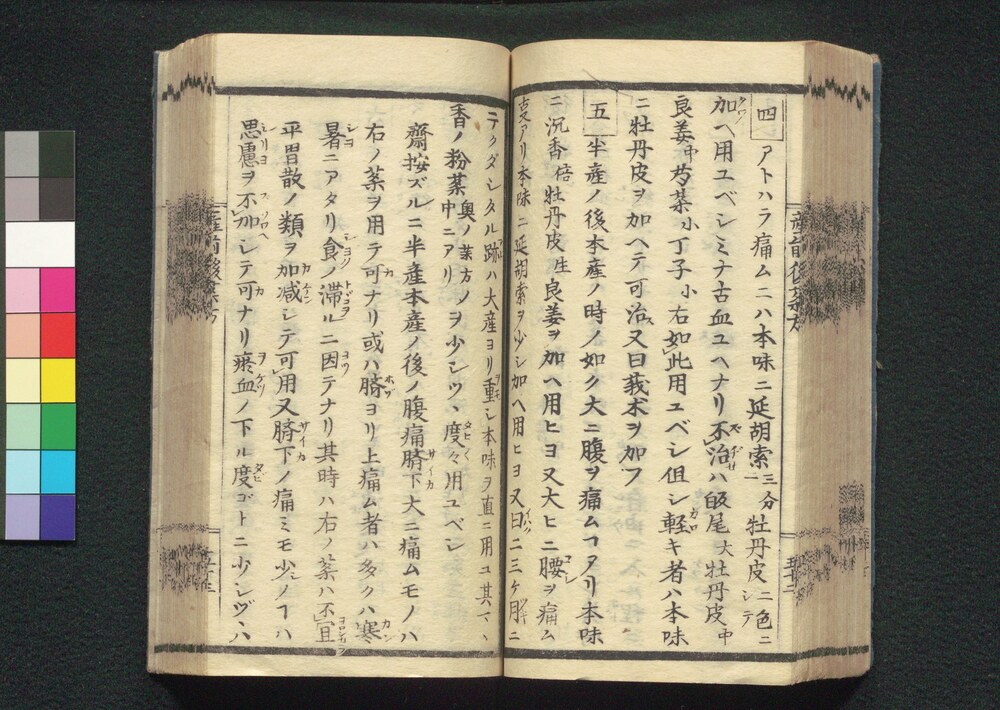 四 アトハラ痛ムニハ本味ニ延胡索三分牡丹皮二色ニシテ
加ヘ用ユベシミナ古血ユヘナリ不治ハ皈尾大牡丹皮中
良姜中芍薬小丁子小右如此用ユベシ但シ軽キ者ハ本味
ニ牡丹皮ヲ加ヘテ可治又曰莪朮ヲ加フ
五 半産ノ後本産ノ時ノ如ク大ニ腹ヲ痛ムヿアリ本味
ニ沉香倍牡丹皮生良姜ヲ加ヘ用ヒヨ又大ヒニ腰ヲ痛ム
支アリ本味ニ延胡索ヲ少シ加ヘ用ヒヨ又曰二三ケ月ニ
テクダシタル跡ハ大産ヨリ重シ本味ヲ直ニ用ユ其マヽ
香ノ粉薬奥ノ薬方ノ中ニアリヲ少シツヽ度々用ユベシ
齋按ズルニ半産本産ノ後ノ腹痛臍下大ニ痛ムモノハ
右ノ薬ヲ用テ可ナリ或ハ臍ヨリ上痛ム者ハ多クハ寒
暑ニアタリ食ノ滞ルニ因テナリ其時ハ右ノ薬ハ不宜
平胃散ノ類ヲ加減シテ可用又臍下ノ痛ミモ少シノヿハ
思慮ヲ不加シテ可ナリ瘀血ノ下ル度ゴトニ少シヅヽハ
産前後薬方